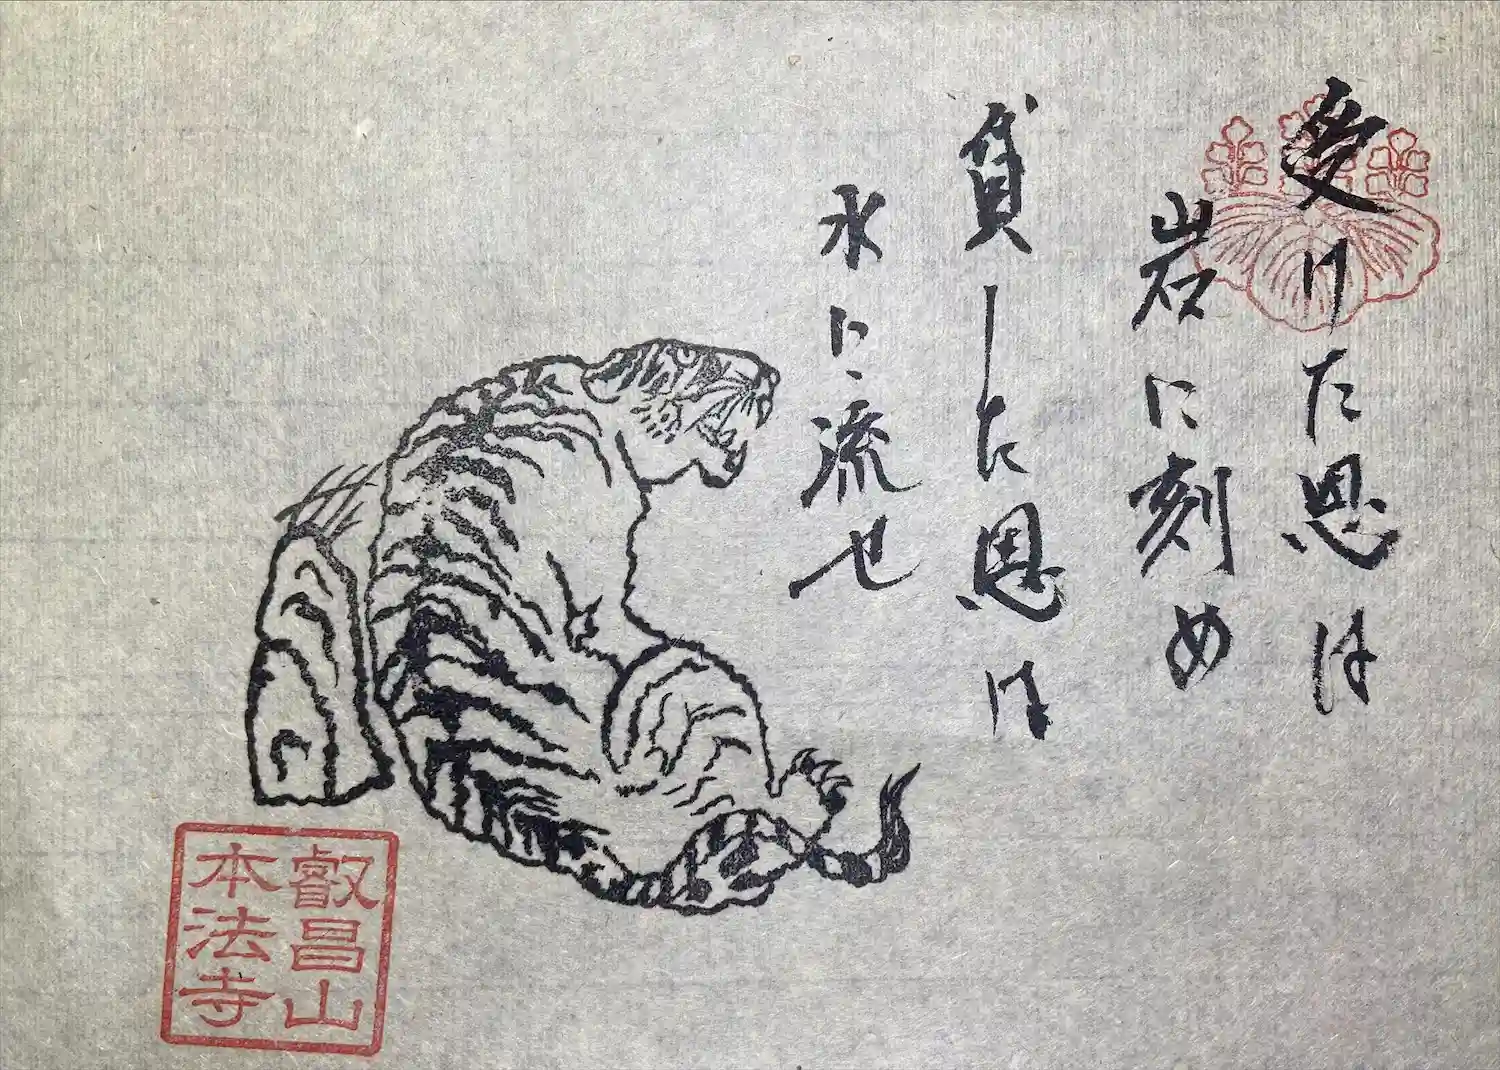 受けた恩は
岩に刻め
貸した恩は
水に流せ
叡昌山
本法寺